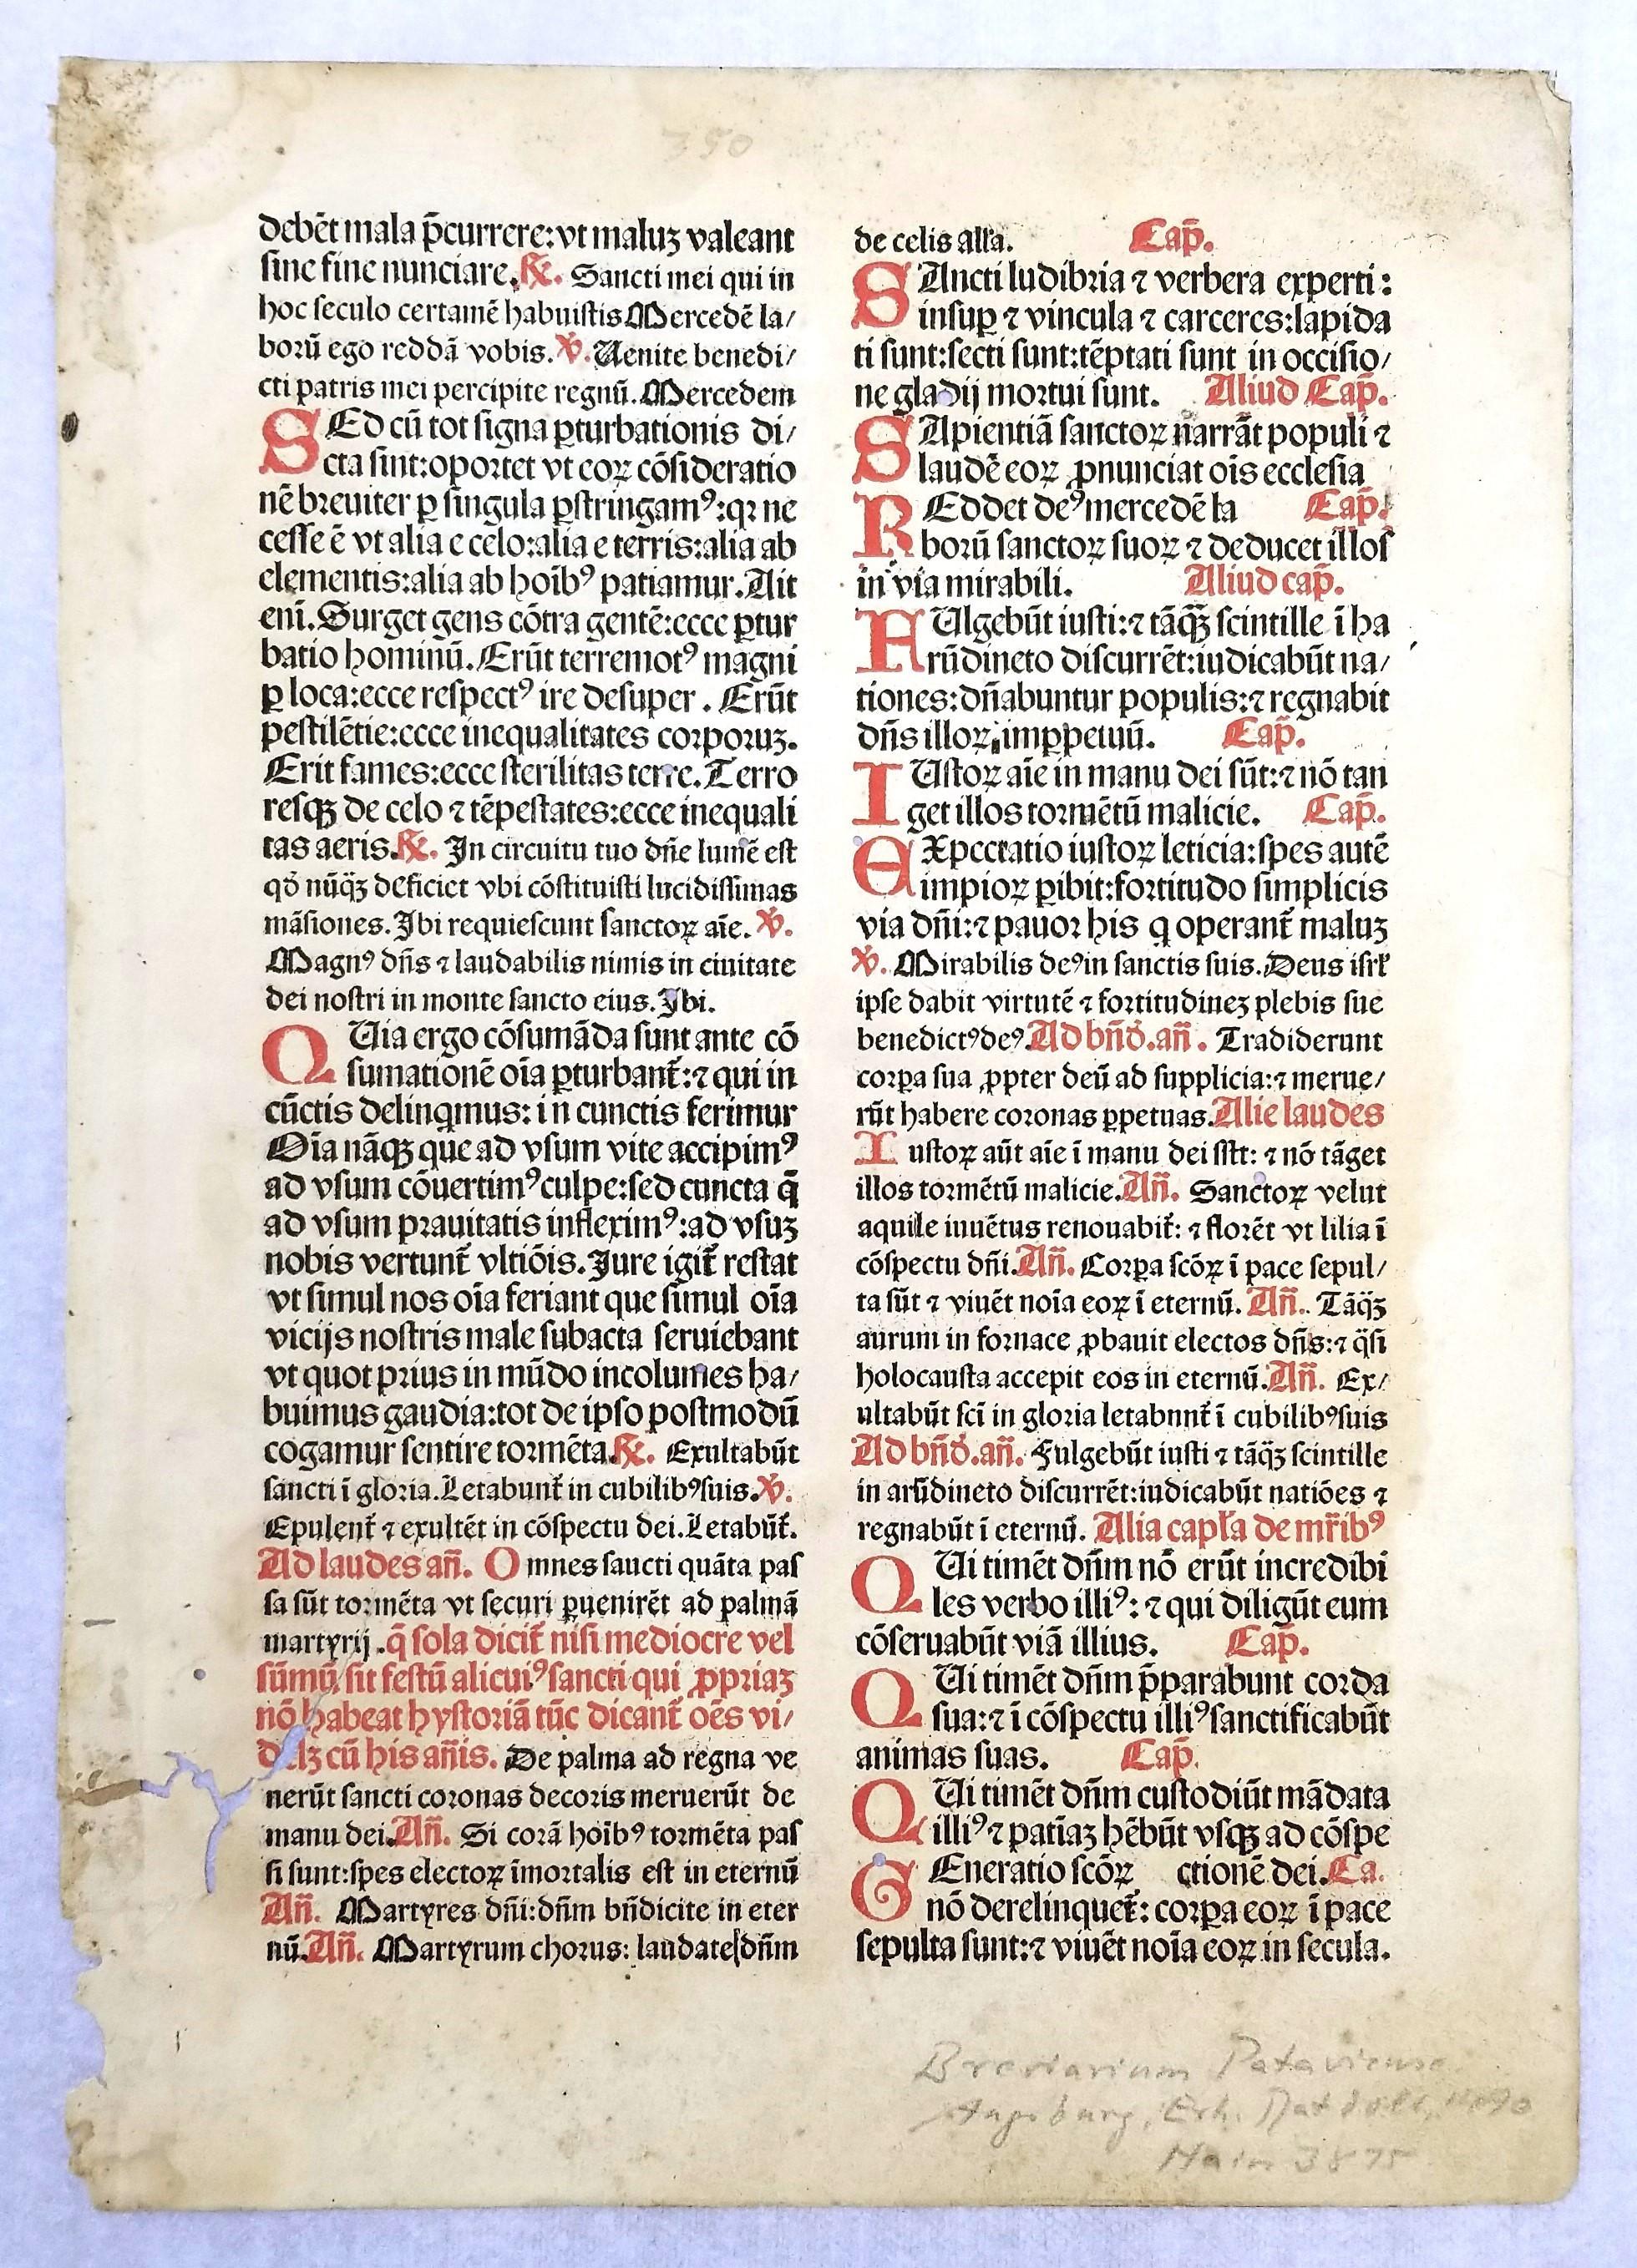 350
debēt mala p̄currere: vt maluʒ valeant
sine fine nunciare. ℟. Sancti mei qui in
hoc seculo certamē habuistis Mercedē la/
borū ego reddā vobis. ℣. Uenite benedi/
cti patris mei percipite regnū. Mercedem
SEd cū tot signa ꝑturbationis di/
cta sint: oportet vt eoꝝ cōsideratio
nē breuiter ꝑ singula ꝑstringamꝰ: qꝛ ne
cesse ē vt alia e celo: alia e terris: alia ab
elementis: alia ab hoībꝰ patiamur. Ait
enī. Surget gens cōtra gentē: ecce ꝑtur
batio hominū. Erūt terremotꝰ magni
ꝑ loca: ecce respectꝰ ire desuper. Erūt
pestilētie: ecce inequalitates corporuʒ.
Erit fames: ecce sterilitas terre. Terro
resqʒ de celo ⁊ tēpestates: ecce inequali
tas aeris. ℟. In circuitu tuo dn̄e lumē est
qd̄ nūq̄ʒ deficiet vbi cōstituisti lucidissimas
māsiones. Ibi requiescunt sanctoꝝ aīe. ℣.
Magnꝰ dn̄s ⁊ laudabilis nimis in ciuitate
dei nostri in monte sancto eius. Ibi.
QUia ergo cōsumāda sunt ante cō
sumationē oīa ꝑturbant̄: ⁊ qui in
cūctis delinqmus: in cunctis ferimur
Oīa nāqʒ que ad vsum vite accipimꝰ
ad vsum cōuertimꝰ culpe: sed cuncta q̄
ad vsum prauitatis infleximꝰ: ad vsuʒ
nobis vertunt̄ vltiōis. Jure igit̄ restat
vt simul nos oīa feriant que simul oīa
vicijs nostris male subacta seruiebant
vt quot prius in mūdo incolumes ha/
buimus gaudia: tot de ipso postmodū
cogamur sentire tormēta. ℟. Exultabūt
sancti ī gloria. Letabunt̄ in cubilibꝰ suis. ℣.
Epulent̄ ⁊ exultēt in cōspectu dei. Letabūt̄.
Ad laudes an̄. Omnes saucti quāta pas
sa sūt tormēta vt securi ꝑuenirēt ad palmā
martyrij. q̄ sola dicit̄ nisi mediocre vel
sūmū sit festū alicuiꝰ sancti qui ꝓpriaʒ
nō habeat hystoriā tūc dicant̄ oēs vi/
delʒ cū his an̄is. De palma ad regna ve
nerūt sancti coronas decoris meruerūt de
manu dei. An̄. Si corā hoībꝰ tormēta pas
si sunt: spes electoꝝ īmortalis est in eternū
An̄. Martyres dn̄i: dn̄m bn̄dicite in eter
nū. An̄. Martyrum chorus: laudate dn̄m
de celis alľa. Cap̄.
SAncti ludibria ⁊ verbera experti:
insuꝑ ⁊ vincula ⁊ carceres: lapida
ti sunt: secti sunt: tēptati sunt in occisio/
ne gladij mortui sunt. Aliud Cap̄.
SApientiā sanctoꝝ narrāt populi ⁊
laudē eoꝝ ꝓnunciat oīs ecclesia
REddet deꝰ mercedē la Cap̄.
borū sanctoꝝ suoꝝ ⁊ deducet illos
in via mirabili. Aliud cap̄.
FUlgebūt iusti: ⁊ tāq̄ʒ scintille ī ha
rūdineto discurrēt: iudicabūt na/
tiones: dn̄abuntur populis: ⁊ regnabit
dn̄s illoꝝ imꝑpetuū. Cap̄.
IUstoꝝ aīe in manu dei sūt: ⁊ nō tan
get illos tormētū malicie. Cap̄.
EXpectatio iustoꝝ leticia: spes autē
impioꝝ ꝑibit: fortitudo simplicis
via dn̄i: ⁊ pauor his q operant̄ maluʒ
℣. Mirabilis deꝰ in sanctis suis. Deus isrľ
ipse dabit virtutē ⁊ fortitudineʒ plebis sue
benedictꝰ deꝰ. Ad bn̄d̄. an̄. Tradiderunt
corꝑa sua ꝓpter deū ad supplicia: ⁊ merue/
rūt habere coronas ꝑpetuas. Alie laudes
Iustoꝝ aūt aīe ī manu dei sūt: ⁊ nō tāget
illos tormētū malicie. An̄. Sanctoꝝ velut
aquile iuuētus renouabit̄: ⁊ florēt vt lilia ī
cōspectu dn̄i. An̄. Corꝑa scōꝝ ī pace sepul/
ta sūt ⁊ viuēt noīa eoꝝ ī eternū. An̄. Tāq̄ʒ
aurum in fornace ꝓbauit electos dn̄s: ⁊ q̄si
holocausta accepit eos in eternū. An̄. Ex/
ultabūt scī in gloria letabunt̄ ī cubilibꝰ suis
Ad bn̄d̄. an̄. Fulgebūt iusti ⁊ tāq̄ʒ scintille
in arūdineto discurrēt: iudicabūt natiōes ⁊
regnabūt ī eternū. Alia capľa de mr̄ibꝰ
QUi timēt dn̄m nō erūt incredibi
les verbo illiꝰ: ⁊ qui diligūt eum
cōseruabūt viā illius. Cap̄.
QUi timēt dn̄m p̄parabunt corda
sua: ⁊ ī cōspectu illiꝰ sanctificabūt
animas suas. Cap̄.
QUi timēt dn̄m custodiūt mādata
illiꝰ ⁊ patiaʒ hēbūt vsqʒ ad cōspe
GEneratio scōꝝ ctionē dei. Ca.
nō derelinquet̄: corꝑa eoꝝ ī pace
sepulta sunt: ⁊ viuēt noīa eoꝝ in secula.
Breviarium Pataviense
Augsburg, Erh. Ratdolt, 1490
Hain 3875